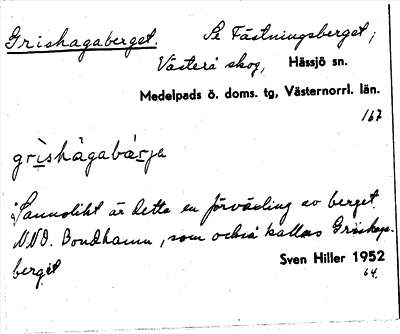 Grishagaberget. Se Fästningsberget;
Västerå skog, Hässjö sn.
Medelpads ö. doms. tg, Västernorrl. län.
167
grìshàgabàrja
Sannolikt är detta en förväxling av berget
NNO. Bondhamn, som också kallas Griskaps-
berget
Sven Hiller 1952
64.